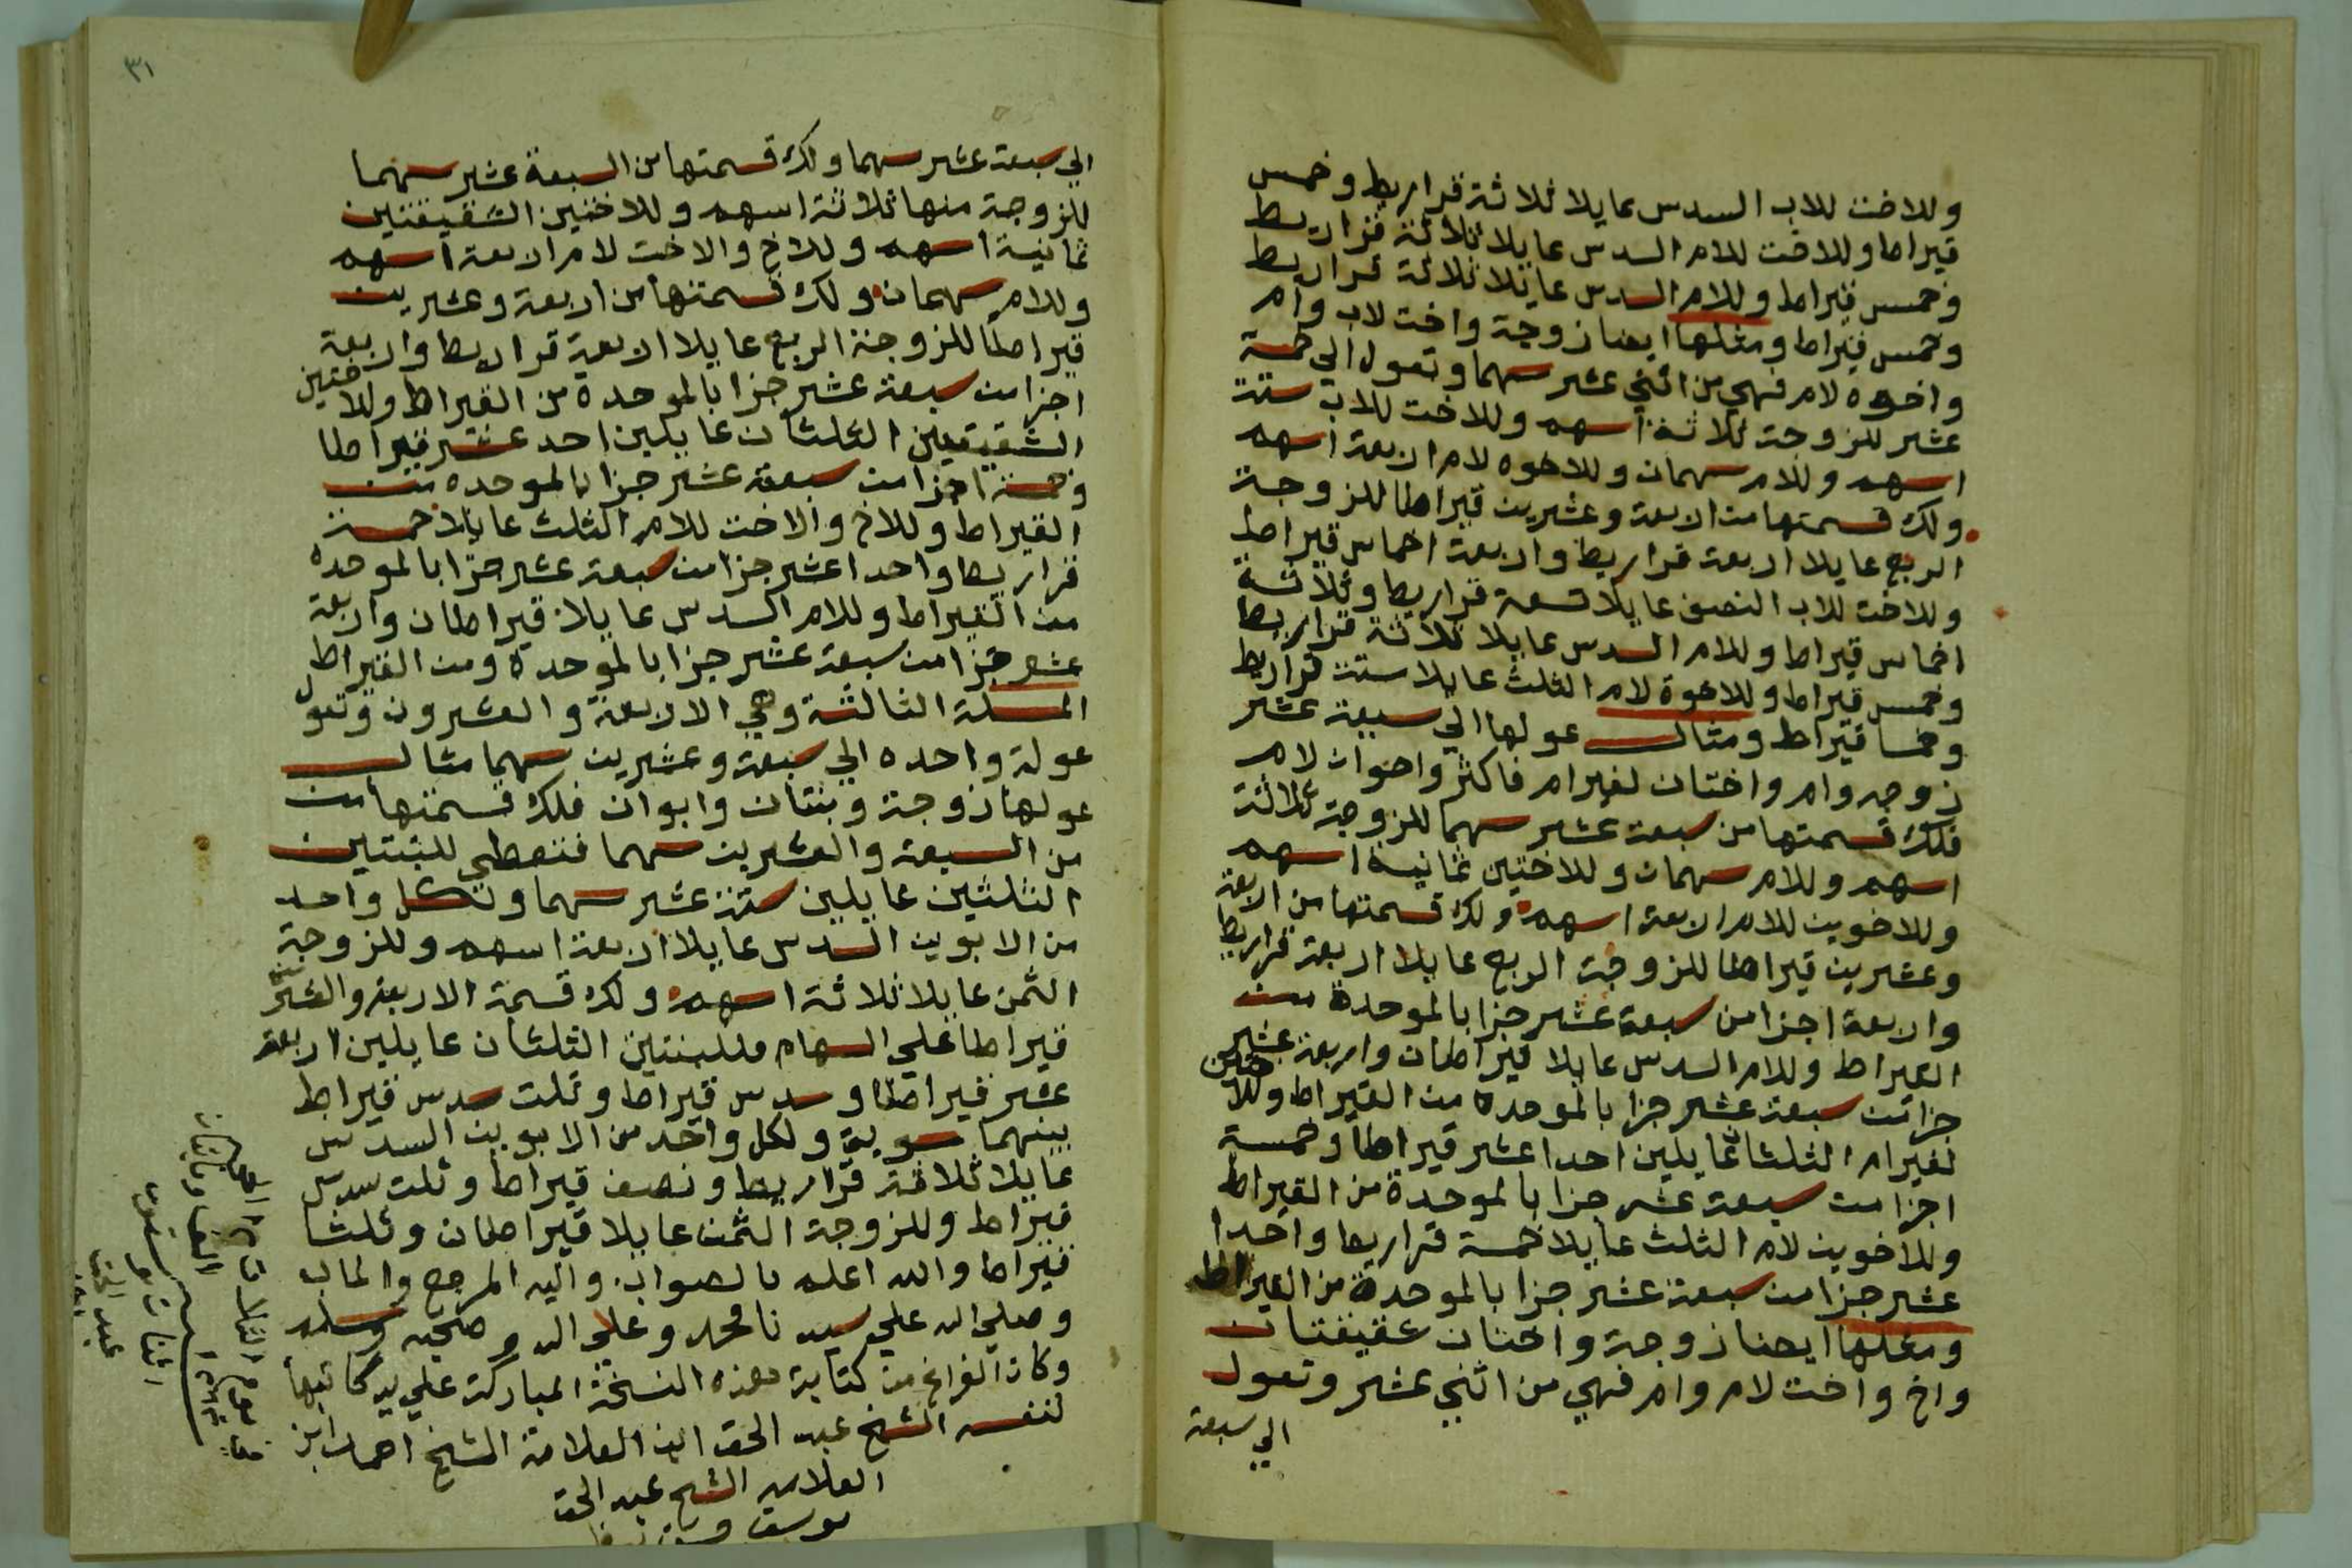 وللاخت للاب السدس عايلا ثلاثة قراريط وخمس
قيراط وللاخت للام السدس عايلا ثلاثة قراريط
وخمس قيراط وللام السدس عايلا ثلاثة قراريط
وخمس قيراط ومثلها ايضا زوجة واخت لاب وام
واخوه لام فهي من اثني عشر سهما وتعول الي خمسة
عشر للزوجة ثلاثة اسهم وللاخت للاب ستة
اسهم وللام سهمان وللاخوه لام اربعة اسهم
ولك قسمتها من اربعة وعشرين قيراطا للزوجة
الربع عايلا اربعة قراريط واربعة اخماس قيراط
وللاخت للاب النصف عايلا تسعة قراريط وثلاثة
اخماس قيراط وللام السدس عايلا ثلاثة قراريط
وخمس قيراط وللاخوة لام الثلث عايلا ستة قراريط
وخمسا قيراط ومثال عولها الي سبعة عشر
زوجه وام واختان لغير ام فاكثر واخوان لام
فلك قسمتها من سبعة عشر سهما للزوجة ثلاثة
اسهم وللام سهمان وللاختين ثمانية اسهم
وللاخوين للام اربعة اسهم ولك قسمتها من اربعة
وعشرين قيراطا للزوجة الربع عايلا اربعة قراريط
واربعة اجزا من سبعة عشر جزا بالموحدة من
القيراط وللام السدس عايلا قيراطان واربعة عشر
جزا من سبعة عشر جزا بالموحده من القيراط وللاختين
لغير ام الثلثان عايلين احدا عشر قيراطا وخمسة
اجزا من سبعة عشر جزا بالموحدة من القيراط
وللاخوين لام الثلث عايلا خمسة قراريط واحدا
عشر جزا من سبعة عشر جزا بالموحدة من القيراط
ومثلها ايضا زوجة واختان شقيقتان
واخ واخت لام وام فهي من اثني عشر وتعول
الي سبعة
٣١
الي سبعة عشر سهما ولك قسمتها من السبعة عشر سهما
للزوجة منها ثلاثة اسهم وللاختين الشقيقتين
ثمانية اسهم وللاخ والاخت لام اربعة اسهم
وللام سهمان ولك قسمتها من اربعة وعشرين
قيراطا للزوجة الربع عايلا اربعة قراريط واربعة
اجزا من سبعة عشر جزا بالموحدة من القيراط وللاختين
الشقيقتين الثلثان عايلين احد عشر قيراطا
وخمسة اجزا من سبعة عشر جزا بالموحده من
القيراط وللاخ والاخت للام الثلث عايلا خمسة
قراريط واحدا عشر جزا من سبعة عشر جزا بالموحده
من القيراط وللام السدس عايلا قيراطان واربعة
عشر جزا من سبعة عشر جزا بالموحدة ومن القيراط
المسلة الثالثة وهي الاربعة والعشرون وتعول
عولة واحده الي سبعة وعشرين سهما مثال
عولها زوجة وبنتان وابوان فلك قسمتها من
من السبعة والعشرين سهما فتعطي للبنتين
الثلثين عايلين ستة عشر سهما ولكل واحد
من الابوين السدس عايلا اربعة اسهم وللزوجة
الثمن عايلا ثلاثة اسهم ولك قسمة الاربعة والعشرين
قيراطا علي السهام فللبنتين الثلثان عايلين اربعة
عشر قيراطا وسدس قيراط وثلث سدس قيراط
بينهما سوية ولكل واحد من الابوين السدس
عايلا ثلاثة قراريط ونصف قيراط وثلث سدس
قيراط وللزوجة الثمن عايلا قيراطان وثلثا
قيراط والله اعلم بالصواب واليه المرجع والماب
وصلي الله علي سيدنا محمد وعلي اله وصحبه وسلم
وكان الفراغ من كتابة هذه النسخة المباركة علي يد كاتبها
لنفسه الشيخ عبد الحق ابن العلامة الشيخ احمد ابن
العلامه الشيخ عبد الحق